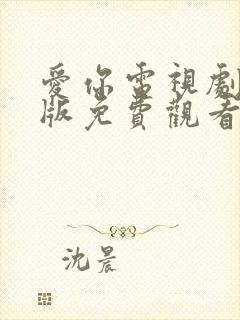 愛你電視劇
版免費觀看
沈晨